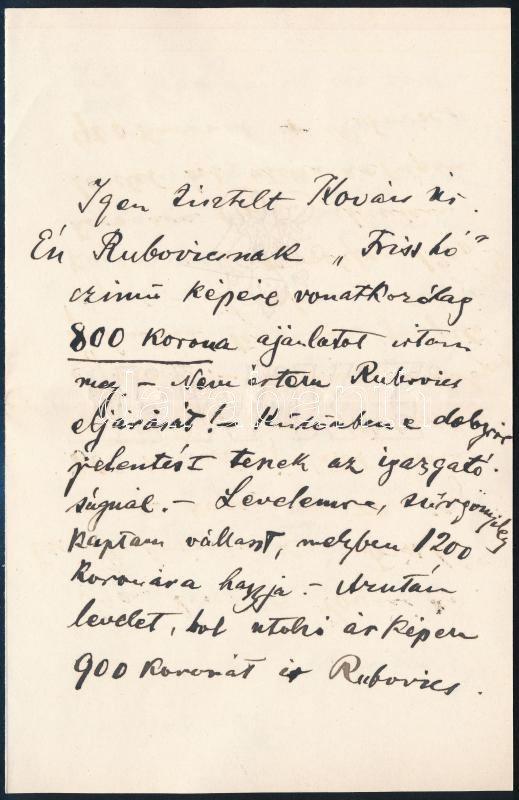 Igen tisztelt Kovács úr.
Én Rubovicsnak „Friss hó”
czimü képére vonatkozólag
800 korona ajánlatot irtam
meg. – Nem értem Rubovics
eljárását! – Különben e dologról
jelentést teszek az igazgató-
ságnál. – Levelemre, sürgönyileg
kaptam választ, melyben 1200
koronára hagyja. – Azután
levelet, hol utolsó ár képen
900 koronát ir Rubovics.